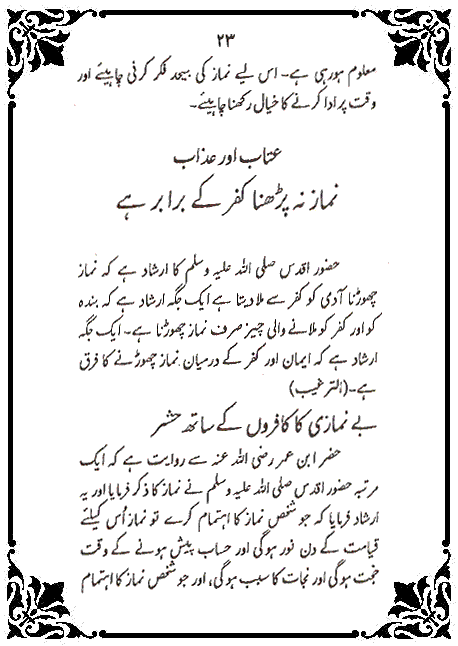 ۲۳
معلوم ہورہی ہے۔ اس لیے نماز کی بیحد فکر کرنی چاہیئے اور
وقت پر ادا کرنے کا خیال رکھنا چاہیئے۔
عتاب اور عذاب
نماز نہ پڑھنا کفر کے برابر ہے
حضور اقدس صلی اللہ علیہ وسلم کا ارشاد ہے کہ نماز
چھوڑنا آدمی کو کفر سے ملا دیتا ہے ایک جگہ ارشاد ہے کہ بندہ
کو اور کفر کو ملانے والی چیز صرف نماز چھوڑنا ہے۔ ایک جگہ
ارشاد ہے کہ ایمان اور کفر کے درمیان نماز چھوڑنے کا فرق
ہے۔ (الترغیب)
بے نمازی کا کافروں کے ساتھ حشر
حضر ابن عمر رضی اللہ عنہ سے روایت ہے کہ ایک
مرتبہ حضور اقدس صلی اللہ علیہ وسلم نے نماز کا ذکر فرمایا اور یہ
ارشاد فرمایا کہ جو شخص نماز کا اہتمام کرے تو نماز اُس کیلئے
قیامت کے دن نور ہوگی اور حساب پیش ہونے کے وقت
حجت ہوگی اور نجات کا سبب ہوگی، اور جو شخص نماز کا اہتمام